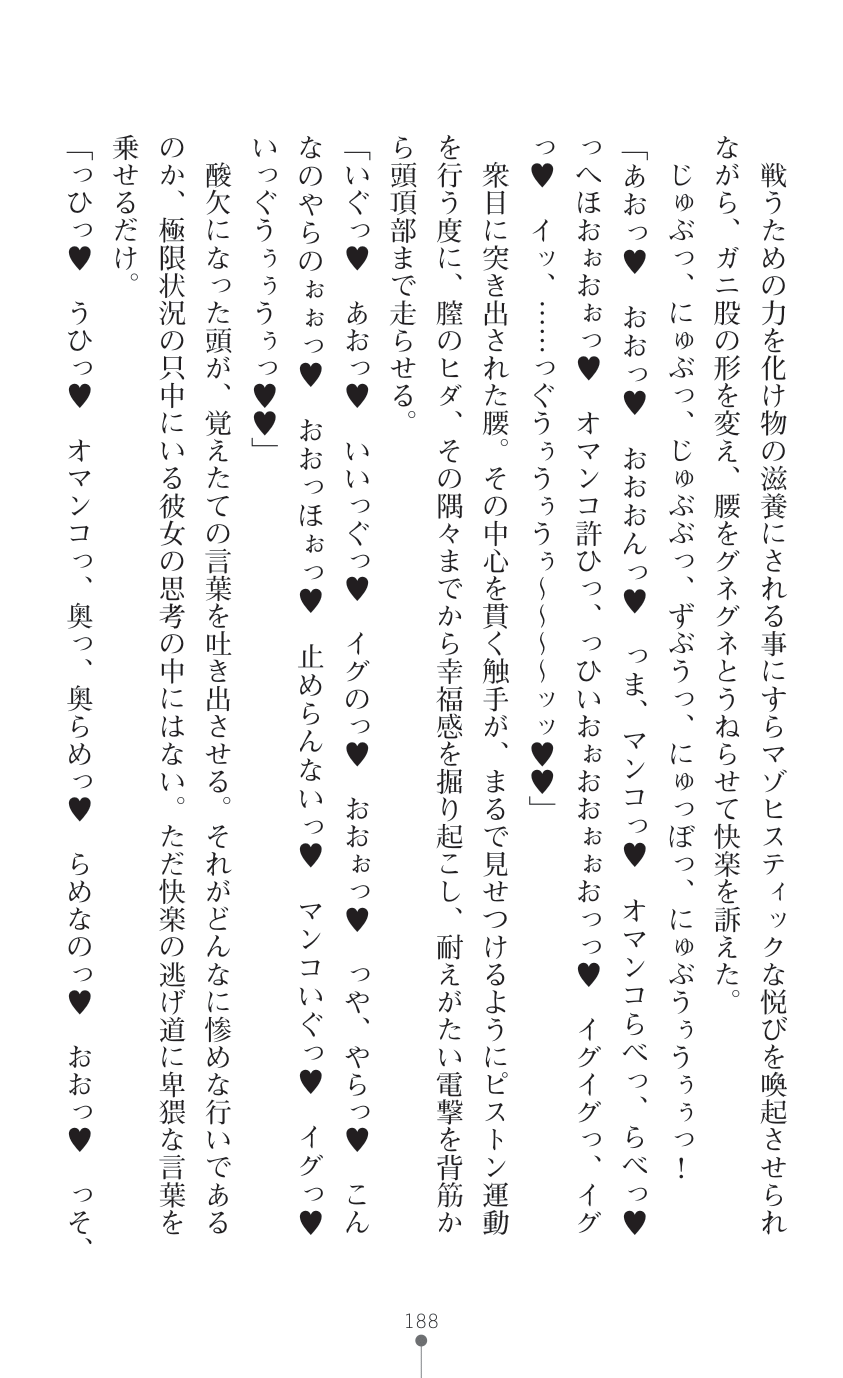 戦うための力を化け物の滋養にされる事にすらマゾヒスティックな悦びを喚起させられ
ながら、ガニ股の形を変え、腰をグネグネとうねらせて快楽を訴えた。
じゅぶっ、にゅぶっ、じゅぶぶっ、ずぶうっ、にゅっぼっ、にゅぶうぅうぅぅっ！
「あおっ♥　おおっ♥　おおおんっ♥　っま、マンコっ♥　オマンコらべっ、らべっ♥
っへほおぉおぉっ♥　オマンコ許ひっ、っひいおぉおおぉぉおっっ♥　イグイグっ、イグ
っ♥　イッ、……っぐうぅうぅうぅ～～～～ッッ♥♥」
衆目に突き出された腰。その中心を貫く触手が、まるで見せつけるようにピストン運動
を行う度に、膣のヒダ、その隅々までから幸福感を掘り起こし、耐えがたい電撃を背筋か
ら頭頂部まで走らせる。
「いぐっ♥　あおっ♥　いいっぐっ♥　イグのっ♥　おおぉっ♥　っや、やらっ♥　こん
なのやらのぉぉっ♥　おおっほぉっ♥　止めらんないっ♥　マンコいぐっ♥　イグっ♥
いっぐうぅぅうぅっ♥♥」
酸欠になった頭が、覚えたての言葉を吐き出させる。それがどんなに惨めな行いである
のか、極限状況の只中にいる彼女の思考の中にはない。ただ快楽の逃げ道に卑猥な言葉を
乗せるだけ。
「っひっ♥　うひっ♥　オマンコっ、奥っ、奥らめっ♥　らめなのっ♥　おおっ♥　っそ、
188